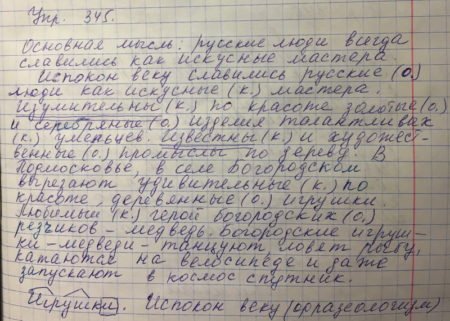 Упр. 345.
Основная мысль: русские люди всегда
славились как искусные мастера.
Испокон веку славились русские (о.)
люди как искусные (к.) мастера.
Изумительны (к.) по красоте золотые (о.)
и серебряные (о.) изделия талантливых
(к.) умельцев. Известны (к.) и художест-
венные (о.) промыслы по дереву. В
Подмосковье, в селе Богородском
вырезают удивительные (к.) по
красоте деревянные (о.) игрушки.
Любимый (к.) герой богородских (о.)
резчиков - медведь. Богородские игруш-
ки - медведи - танцуют, ловят рыбу,
катаются на велосипеде и даже
запускают в космос спутник.
Игрушки. Испокон веку (фразеологизм)